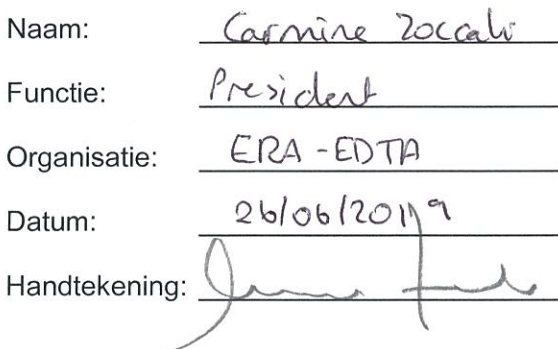 Naam: Carmine Zoccali
Functie: President
Organisatie: ERA-EDTA
Datum: 26/06/2019
Handtekening: